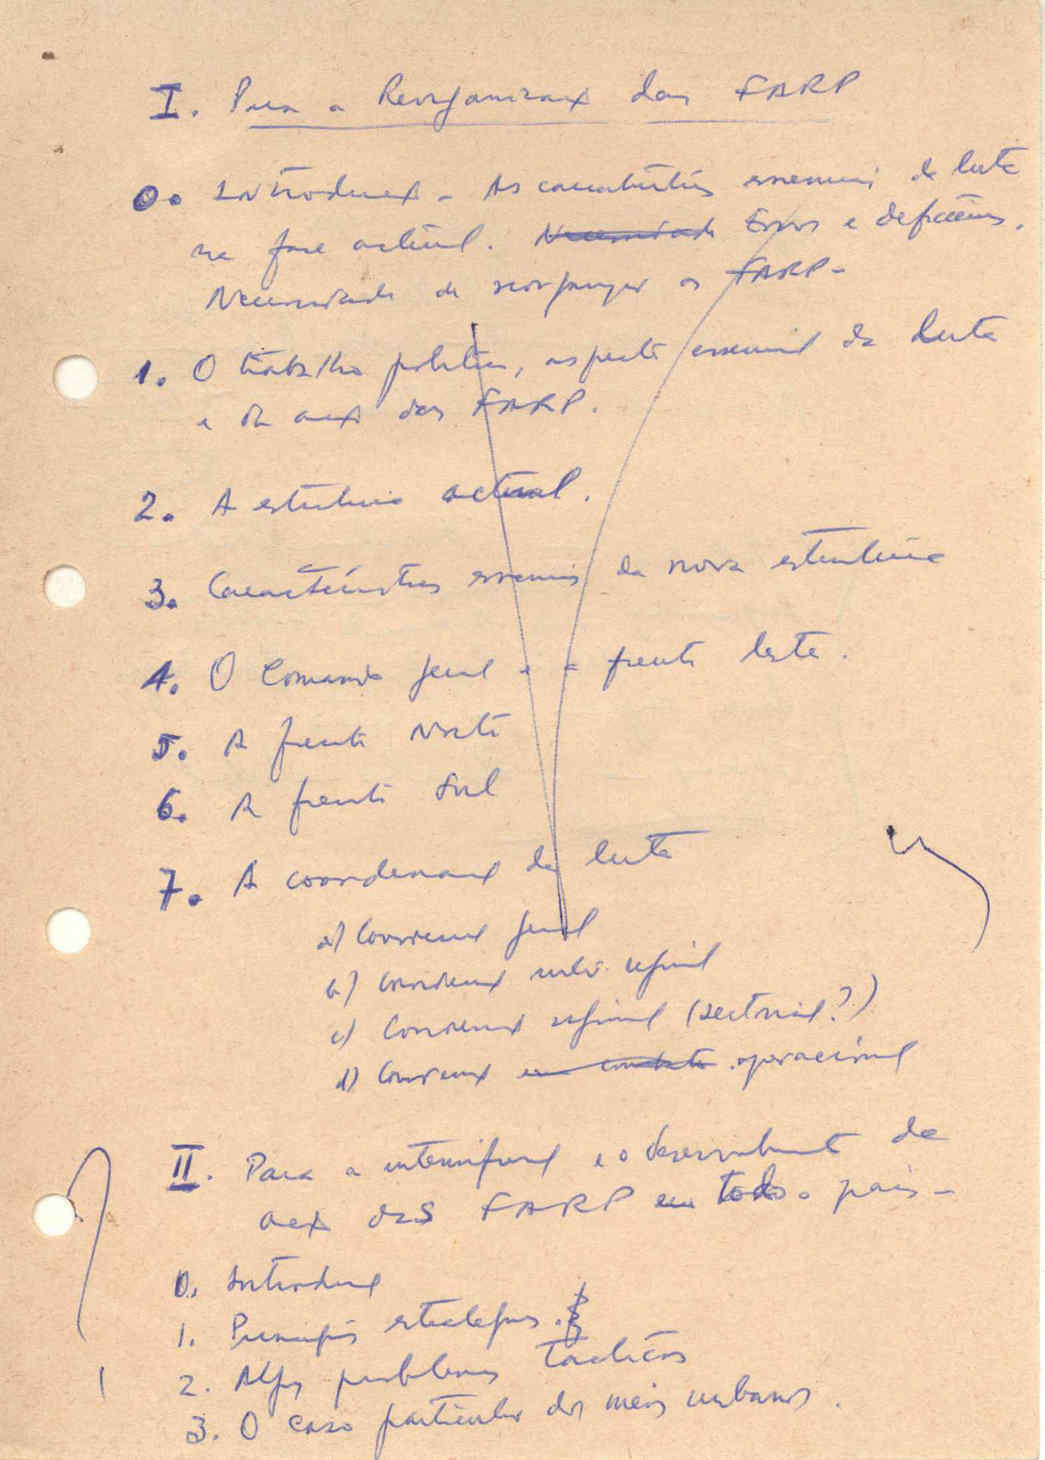 I. Para a Reorganização das FARP
0. Introdução - As características essenciais da luta
na fase actual. Necessidade Erros e deficiências.
Necessidade de reorganizar as FARP-
1. O trabalho político, aspecto essencial da luta
e da acção das FARP.
2. A estrutura actual.
3. Características essenciais da nova estrutura
4. O Comando geral e a frente leste.
5. A frente Norte
6. A frente Sul
7. A coordenação da luta
a) Coordenação geral
b) Coordenação inter-regional
c) Coordenação regional (sectorial?)
d) Coordenação em combate operacional
II. Para a intensificação e o desenvolvimento da
acção das FARP em todo o país-
0. Introdução
1. Princípios estratégicos.
2. Alguns problemas tácticos
3. O caso particular dos meios urbanos.